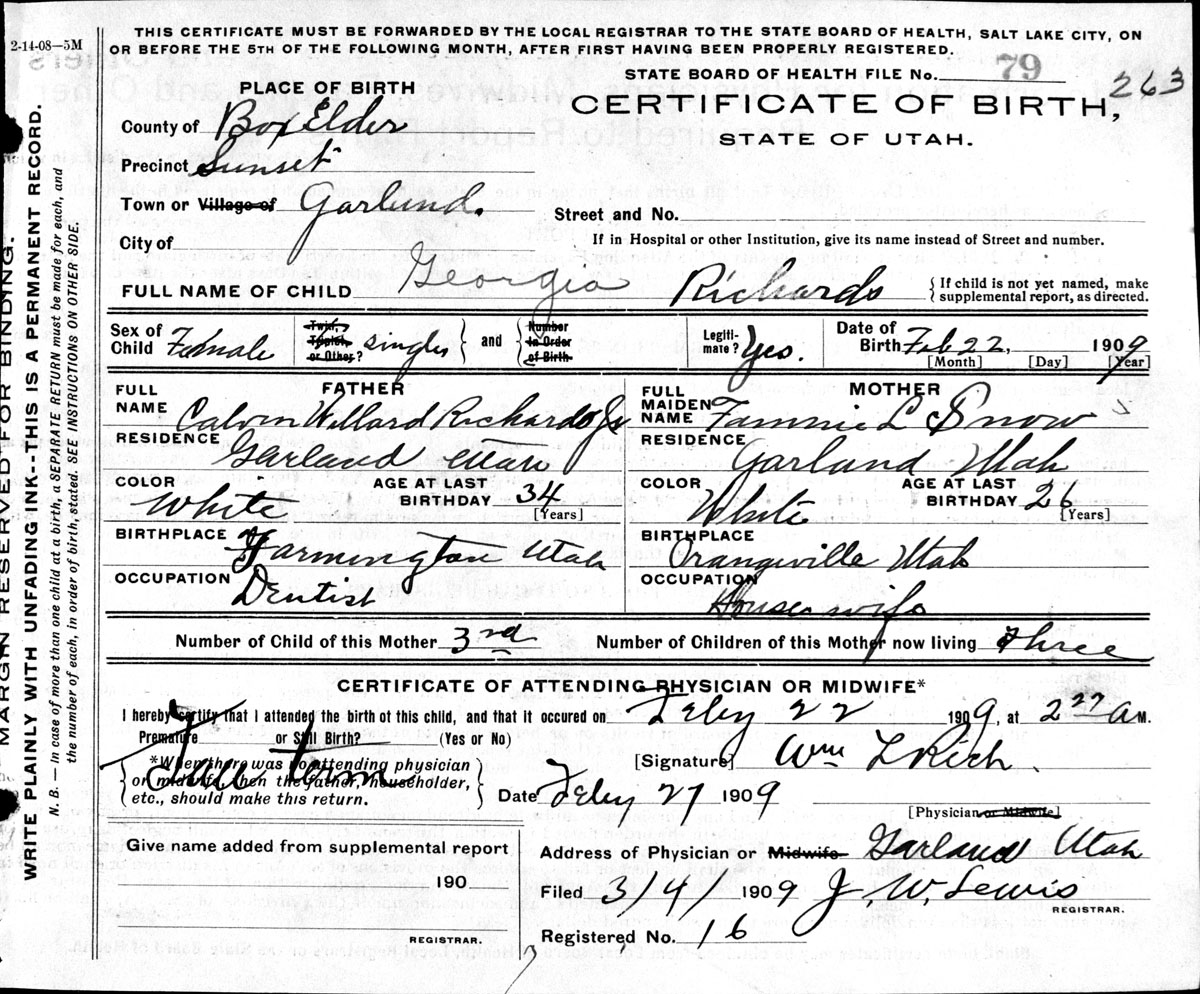 2-14-08—5M
THIS CERTIFICATE MUST BE FORWARDED BY THE LOCAL REGISTRAR TO THE STATE BOARD OF HEALTH, SALT LAKE CITY, ON
OR BEFORE THE 5TH OF THE FOLLOWING MONTH, AFTER FIRST HAVING BEEN PROPERLY REGISTERED.
STATE BOARD OF HEALTH FILE No. 79
263
CERTIFICATE OF BIRTH,
STATE OF UTAH.
PLACE OF BIRTH
County of Box Elder
Precinct Sunset
Town or Village of Garland.
Street and No.
City of
If in Hospital or other Institution, give its name instead of Street and number.
FULL NAME OF CHILD Georgia Richards
If child is not yet named, make
supplemental report, as directed.
Sex of Child Female
Twin, Triplet, or Other? single and Number in Order of Birth
Legitimate? Yes.
Date of Birth Feb 22 1909
[Month] [Day] [Year]
FATHER
FULL NAME Calvin Willard Richards Jr
RESIDENCE Garland Utah
COLOR White AGE AT LAST BIRTHDAY 34 [Years]
BIRTHPLACE Farmington Utah
OCCUPATION Dentist
MOTHER
FULL MAIDEN NAME Fannie L Snow
RESIDENCE Garland Utah
COLOR White AGE AT LAST BIRTHDAY 26 [Years]
BIRTHPLACE Orangeville Utah
OCCUPATION Housewife
Number of Child of this Mother 3rd Number of Children of this Mother now living three
CERTIFICATE OF ATTENDING PHYSICIAN OR MIDWIFE*
I hereby certify that I attended the birth of this child, and that it occured on Feby 22 1909, at 2 27 a M.
Premature or Still Birth? (Yes or No)
term
*When there was no attending physician
or midwife, then the father, householder,
etc., should make this return.
[Signature] Wm L Rich.
Date Feby 27 1909
[Physician or Midwife]
Give name added from supplemental report
190
REGISTRAR.
Address of Physician or Midwife Garland Utah
Filed 3/4 1909 J. W. Lewis
REGISTRAR.
Registered No. 16
MARGIN RESERVED FOR BINDING.
WRITE PLAINLY WITH UNFADING INK--THIS IS A PERMANENT RECORD.
N. B. — In case of more than one child at a birth, a SEPARATE RETURN must be made for each, and
the number of each, in order of birth, stated. SEE INSTRUCTIONS ON OTHER SIDE.